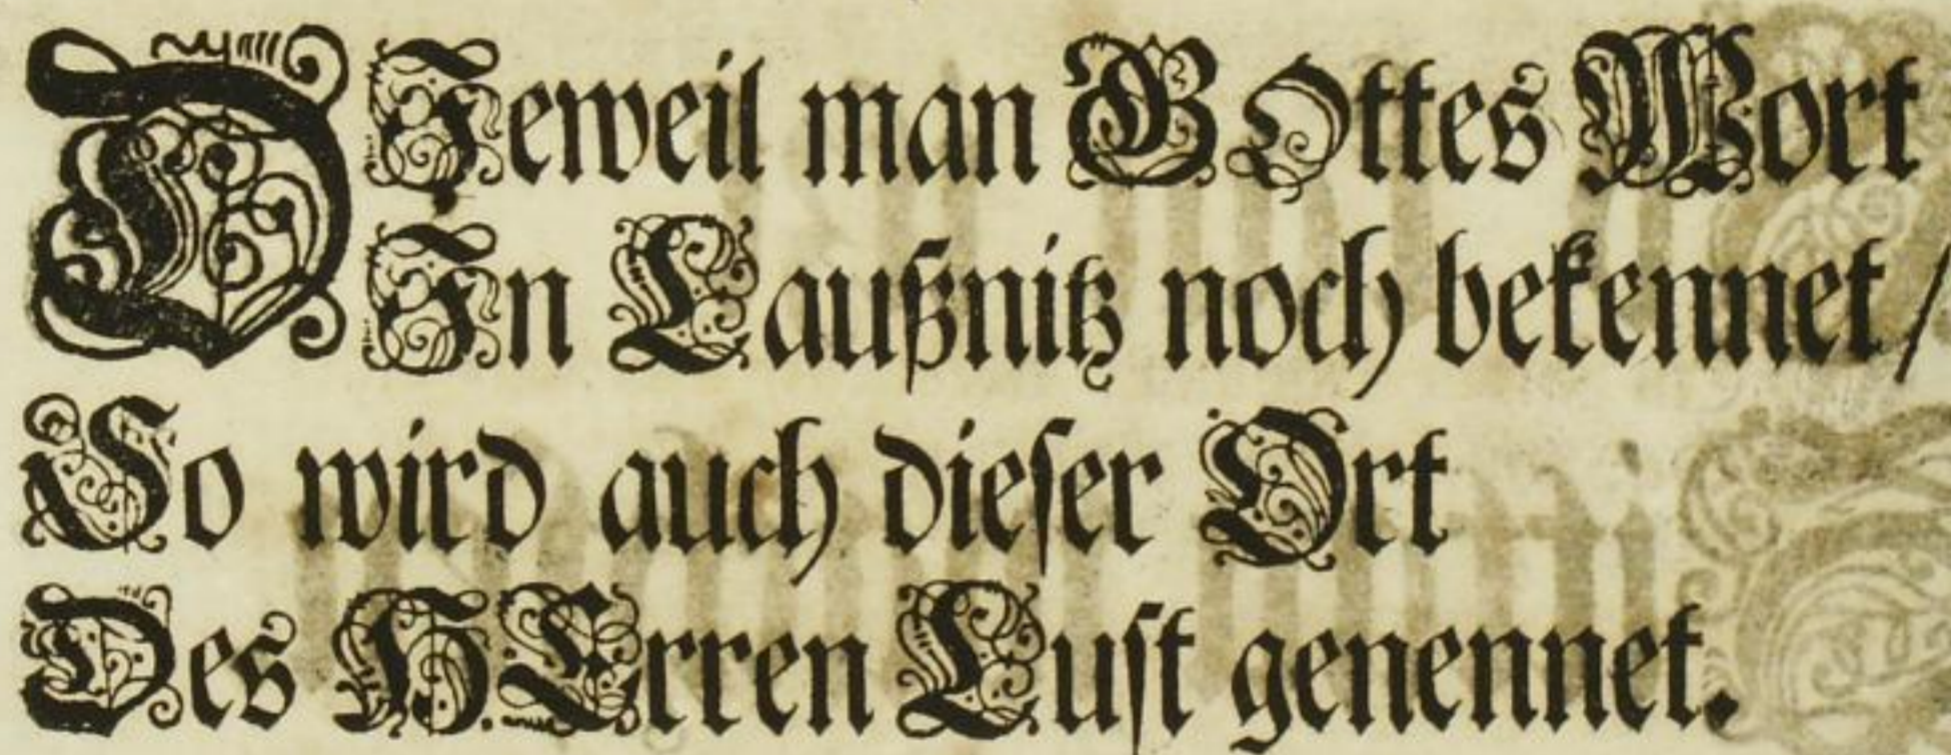 DIeweil man GOttes Wort
In Laußnitz noch bekennet /
So wird auch dieser Ort
Des HErren Lust genennet.